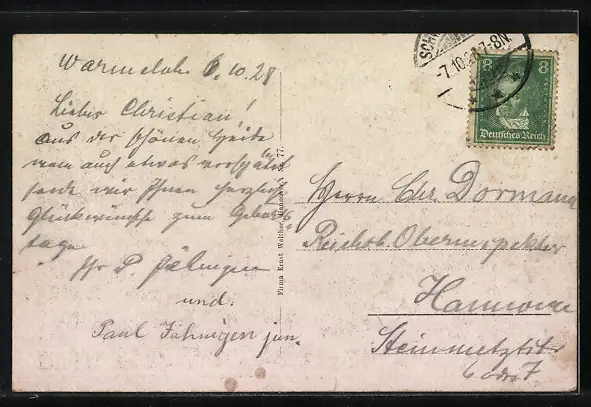 Warmeloh 6.10.28
Lieber Christian!
Aus der schönen Heide
wenn auch etwas verspätet
sende wir Ihnen herzliche
Glückwünsche zum Geburts
tage
Ihr P. Jähnigen
und.
Paul Jähnigen jun.
Firma Ernst Walther, Hannover. Nr. 77.
SCH
-7.10.28.7-8N.
8 8
Deutsches Reich
Herrn Chr Dormann
Reichsb. Oberinspektor
Hannover
Steinmetzstr.
6 oder 7.